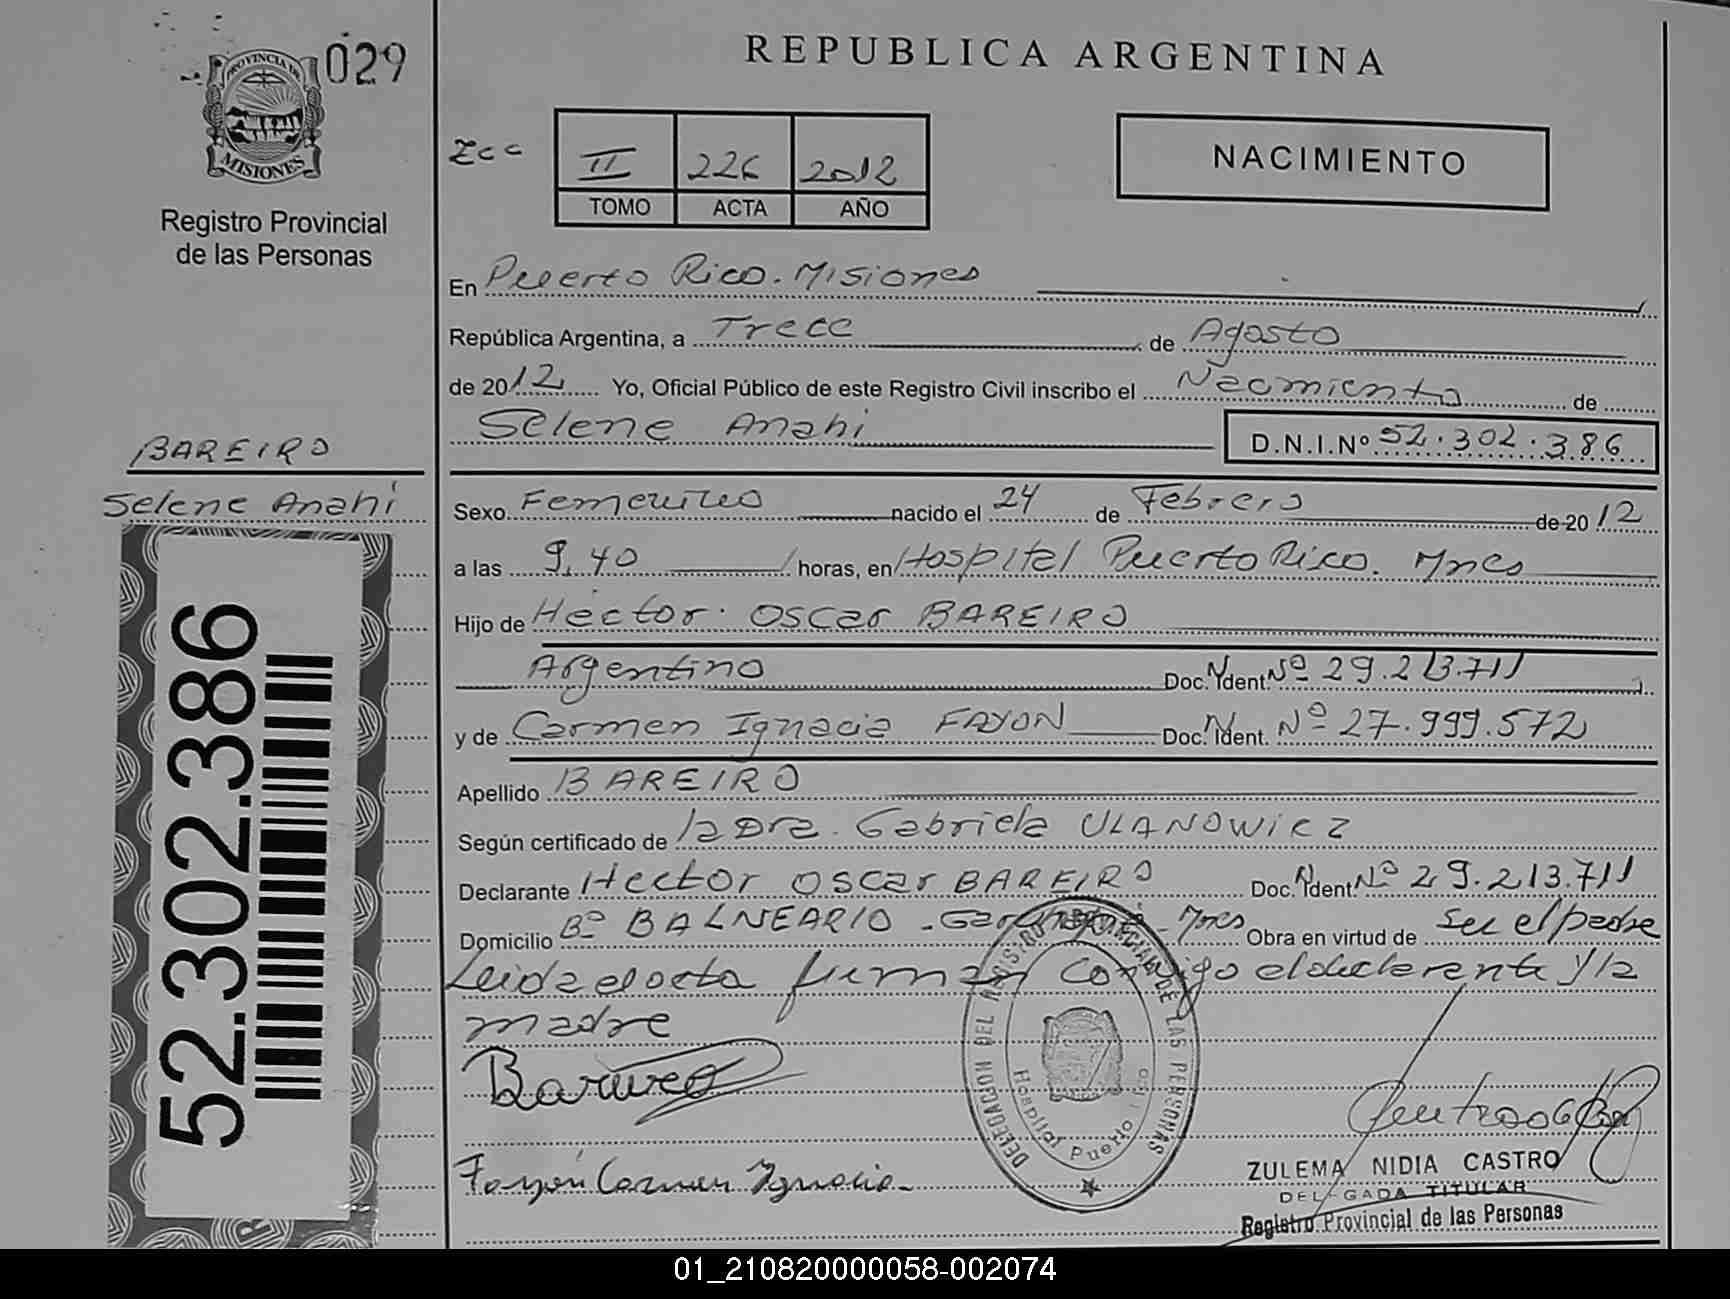 029
PROVINCIA DE
MISIONES
Registro Provincial
de las Personas
BAREIRO
Selene Anahi
52.302.386
REPUBLICA ARGENTINA
II 226 2012
TOMO ACTA AÑO
NACIMIENTO
En Puerto Rico. Misiones
República Argentina, a Trece de Agosto
de 2012 Yo, Oficial Público de este Registro Civil inscribo el Nacimiento de
Selene Anahi D.N.I.Nº 52.302.386
Sexo Femenino nacido el 24 de Febrero de 2012
a las 9,40 horas, en Hospital Puerto Rico. Mnes
Hijo de Héctor Oscar BAREIRO
Argentino Doc. Ident. Nº 29.213.711
y de Carmen Ignacia FAYON Doc. Ident. Nº 27.999.572
Apellido BAREIRO
Según certificado de la Dra. Gabriela ULANOWICZ
Declarante Hector Oscar BAREIRO Doc. Ident. Nº 29.213.711
Domicilio Bº BALNEARIO - Garuhapé - Mnes Obra en virtud de ser el padre
Leida el acta firman conmigo el declarante y la
madre
Bareiro
Fayón Carmen Ignacia
DELEGACION DEL REGISTRO PROVINCIAL DE LAS PERSONAS
Hospital Puerto Rico
ZULEMA NIDIA CASTRO
DELEGADA TITULAR
Registro Provincial de las Personas
01_210820000058-002074